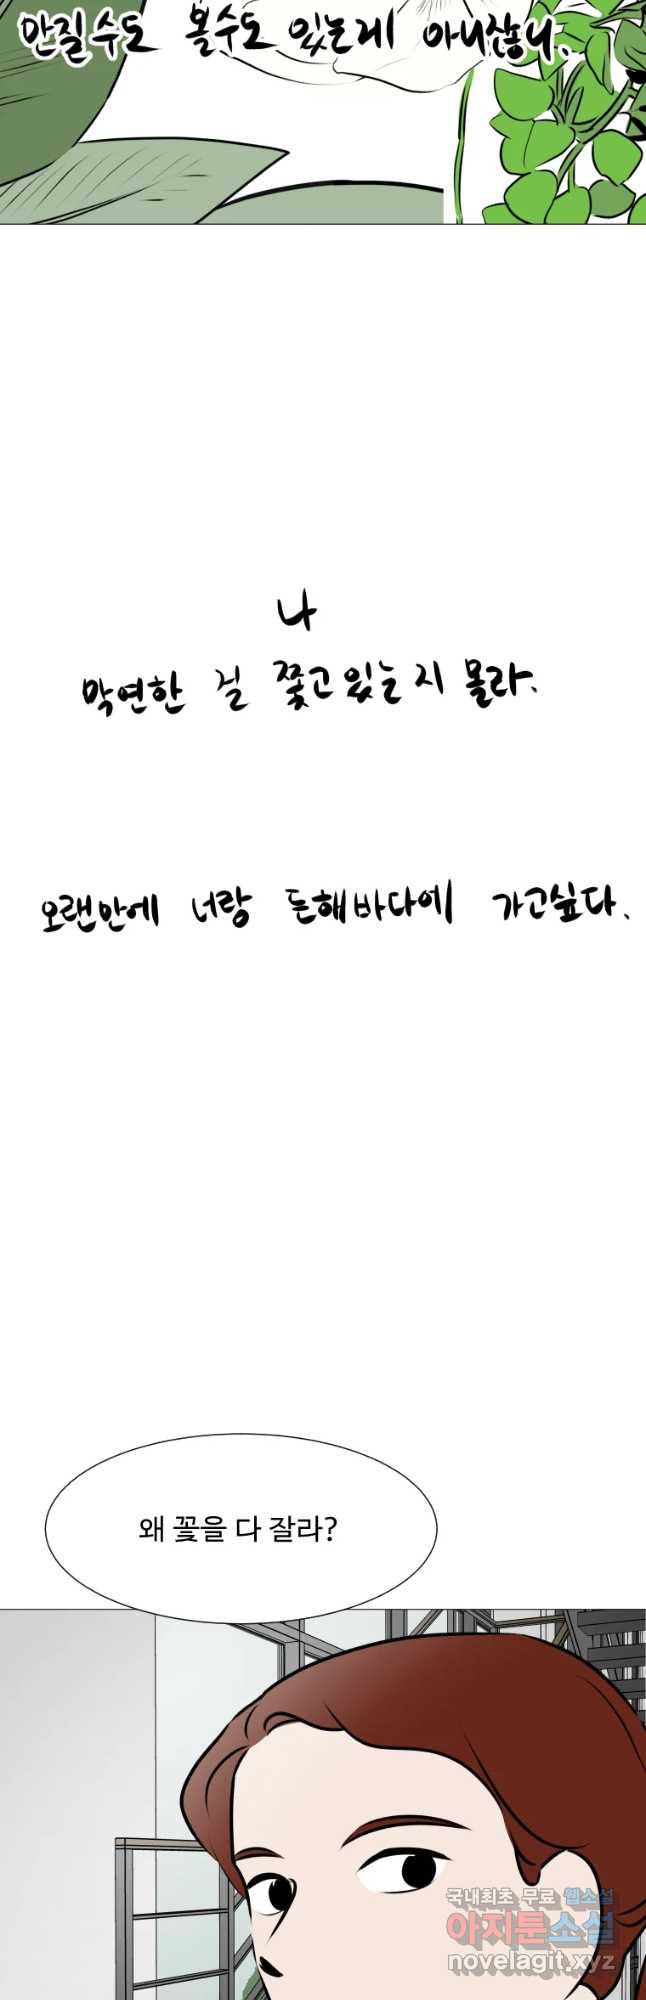 만질수도 볼수도 있는게 아니잖니.
나
막연한 걸 쫓고있는지 몰라.
오랜만에 너랑 돈해바다에 가고싶다.
왜 꽃을 다 잘라?
국내최초 무료 웹소설
아지툰소설
novelagit.xyz